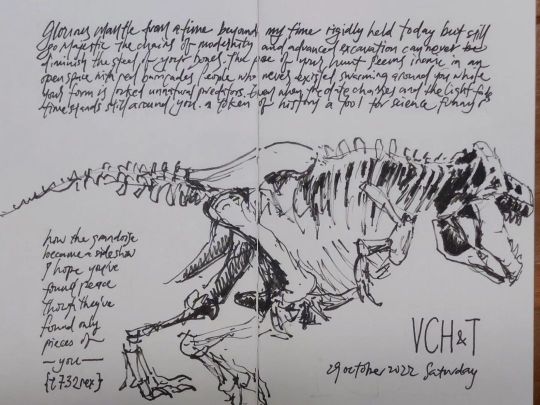 Glorious mantle from a time beyond my time rigidly held today but still
so Majestic the chains of modernity and advanced excavation can never be
diminish the steel of your bones. The pose of your hunt seems in an
open space with red comrades people who never existed swarming around you while
your form is locked unnatural predators. Even when the date changes and the light fade
time stands still around you. a token of history a tool for science funny
how the grandoise
became a sideshow
I hope you've
found peace
though they've
found only
pieces of
—you—
{t732rex}
VCH&T
29 october 2022 Saturday